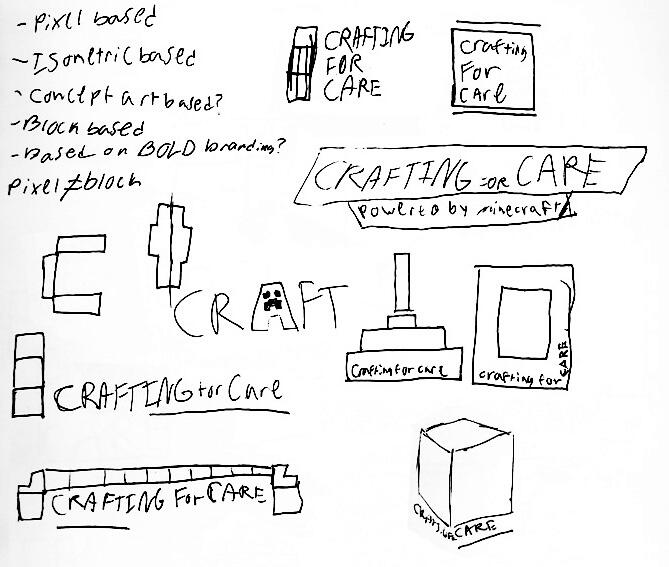 - Pixel based
- Isometric based
- Concept art based?
- Block based
- Based on BOLD branding?
Pixel ≠ block
CRAFTING
FOR
CARE
Crafting
For
CARE
CRAFTING FOR CARE
Powered by minecraft
CRAFT
Crafting for care
crafting for CARE
CRAFTING for Care
CRAFTING For CARE
CARE